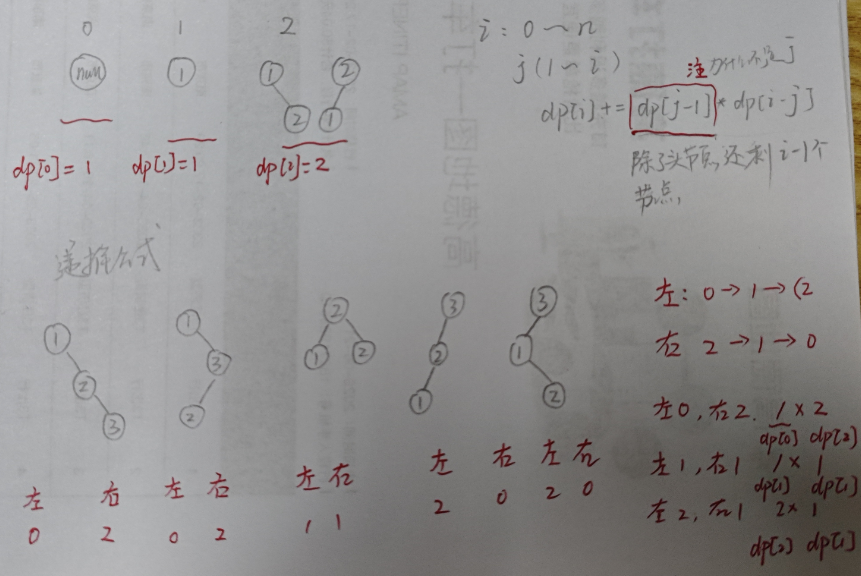 0 1 2
i: 0 ~ n
j (1 ~ i)
注 为什么不是j
null 1 1 2 2 1
dp[i] += dp[j-1] * dp[i-j]
dp[0]=1 dp[1]=1 dp[2]=2
除了头节点,还剩i-1个
节点,
递推公式
左: 0→1→(2
右 2→1→0
1 2 3
1 3 2
2 1 2
3 2 1
3 1 2
左0,右2. 1×2
dp[0] dp[2]
左1,右1 1×1
dp[1] dp[1]
左2,右1 2×1
dp[2] dp[1]
左 右 左 右 左右 左 右 左 右
0 2 0 2 1 1 2 0 2 0